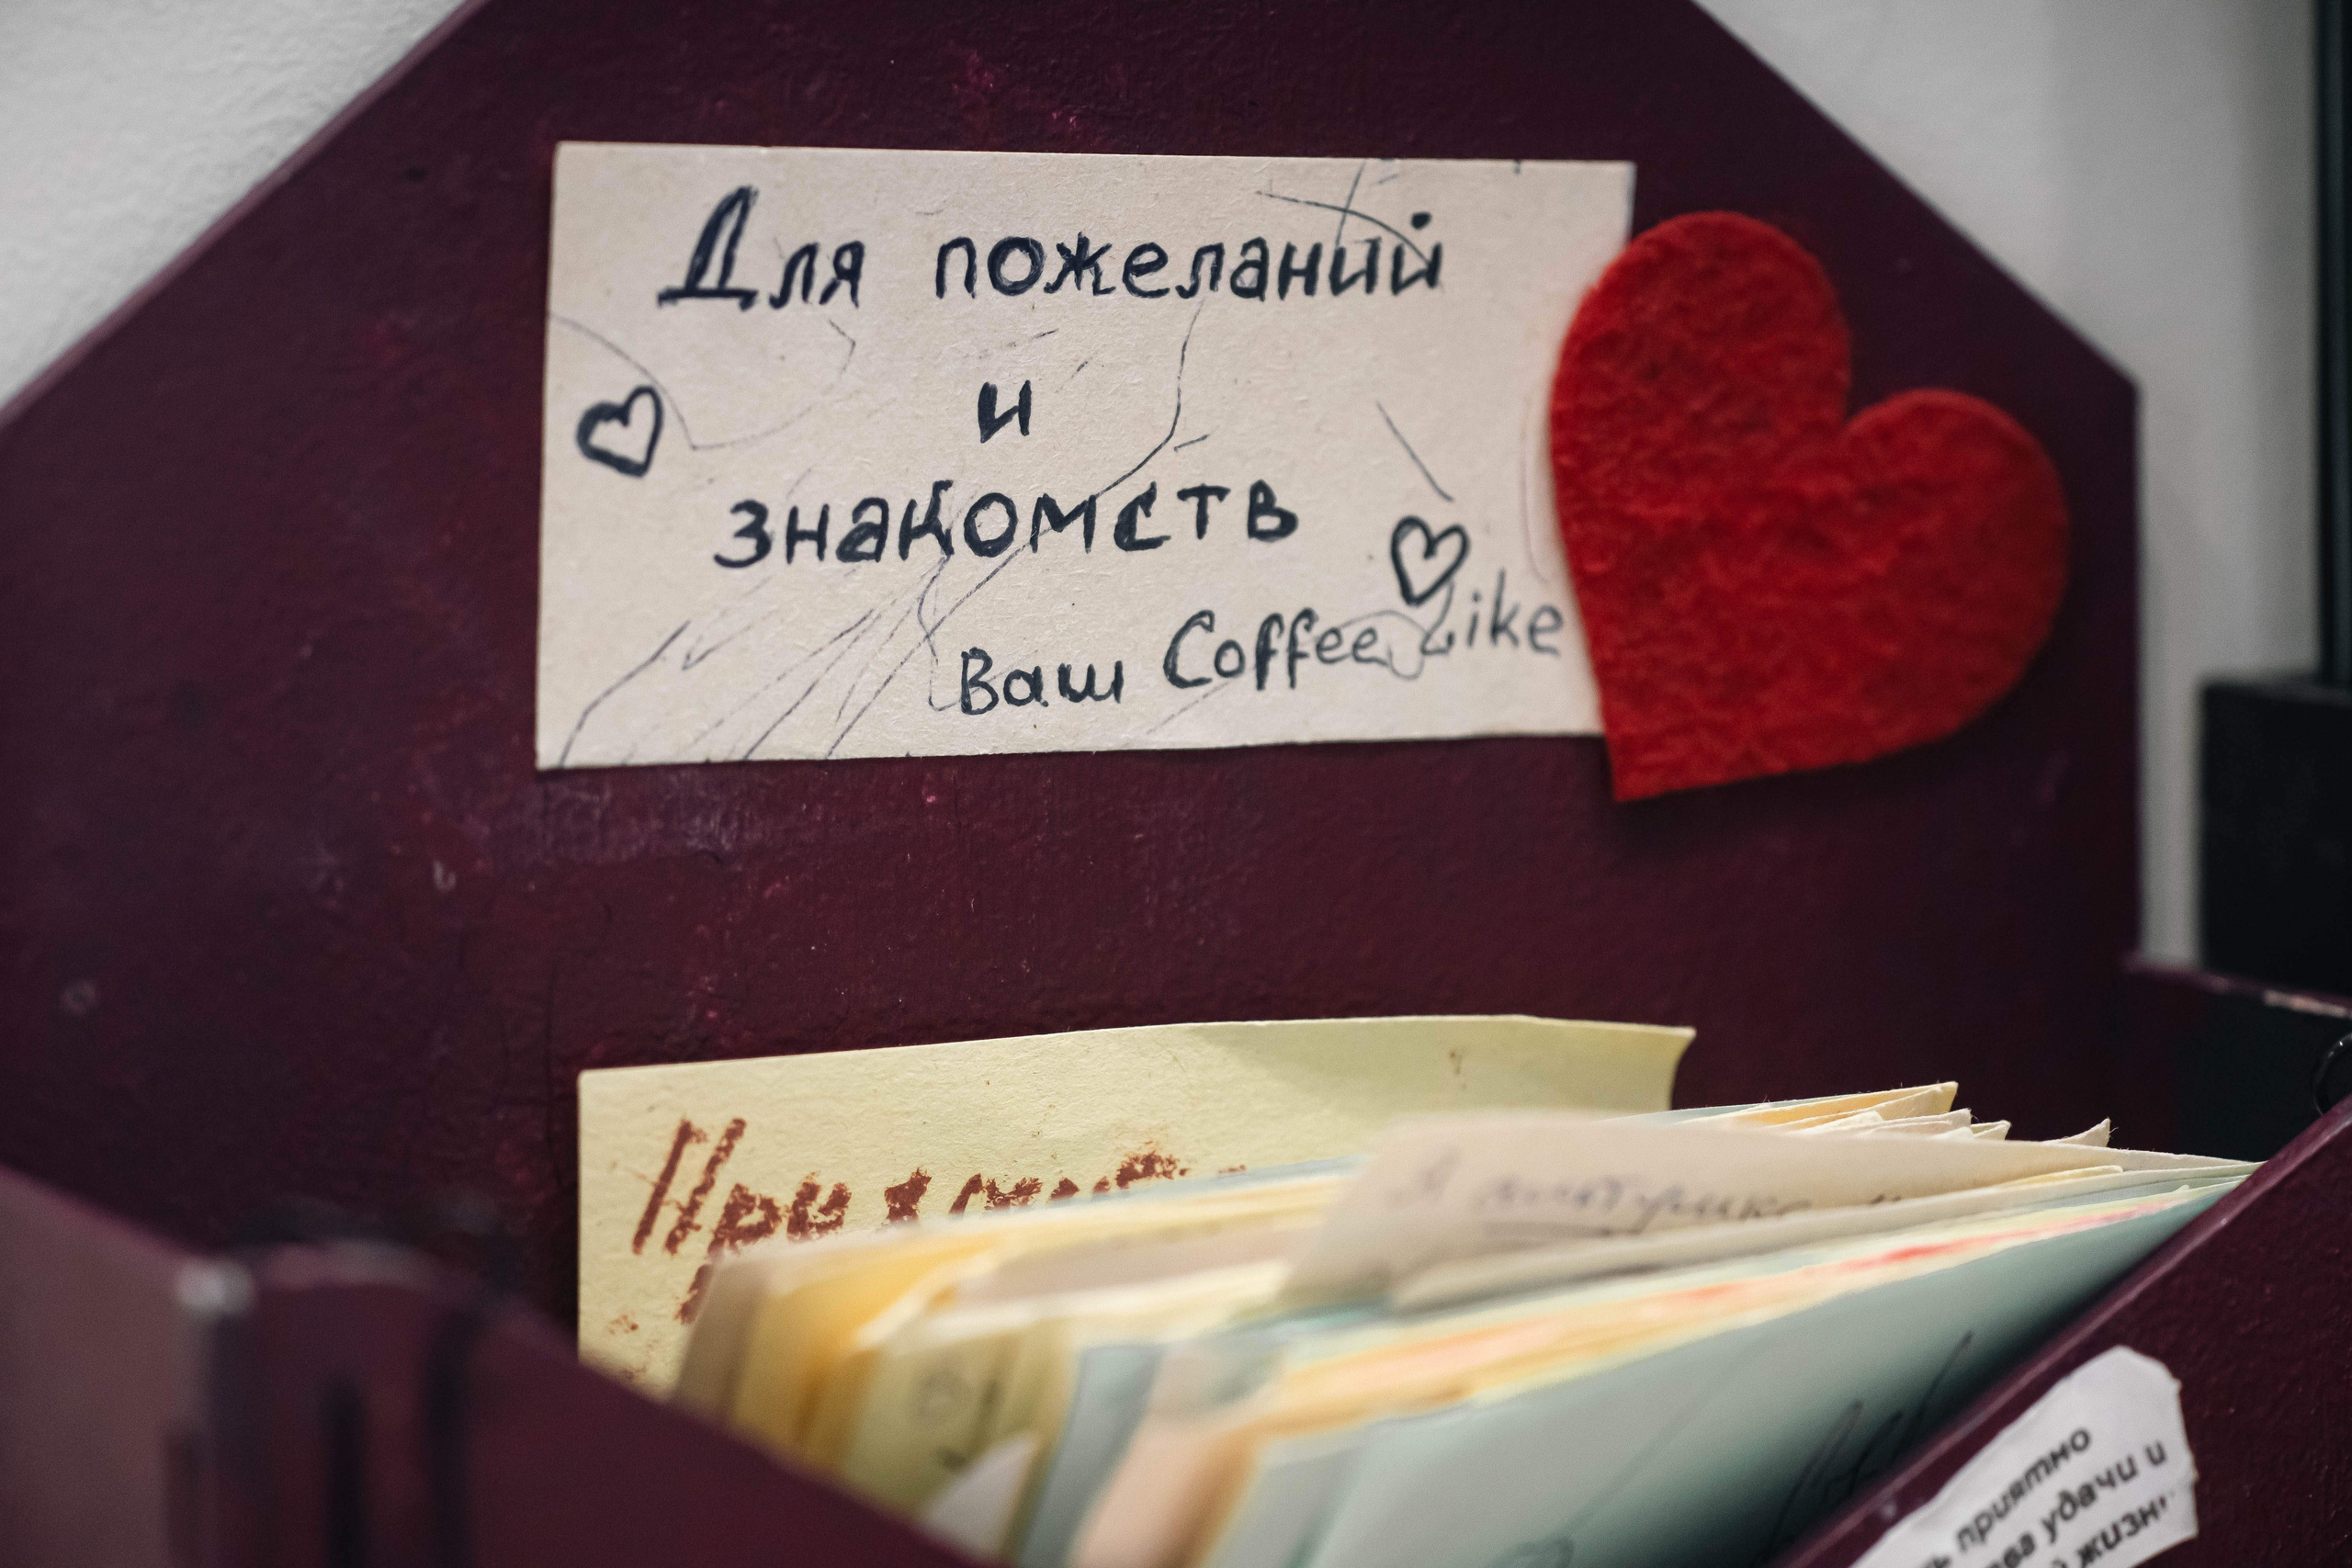 Для пожеланий
и
знакомств
Ваш Coffee Like
Я
приятно
удачи и